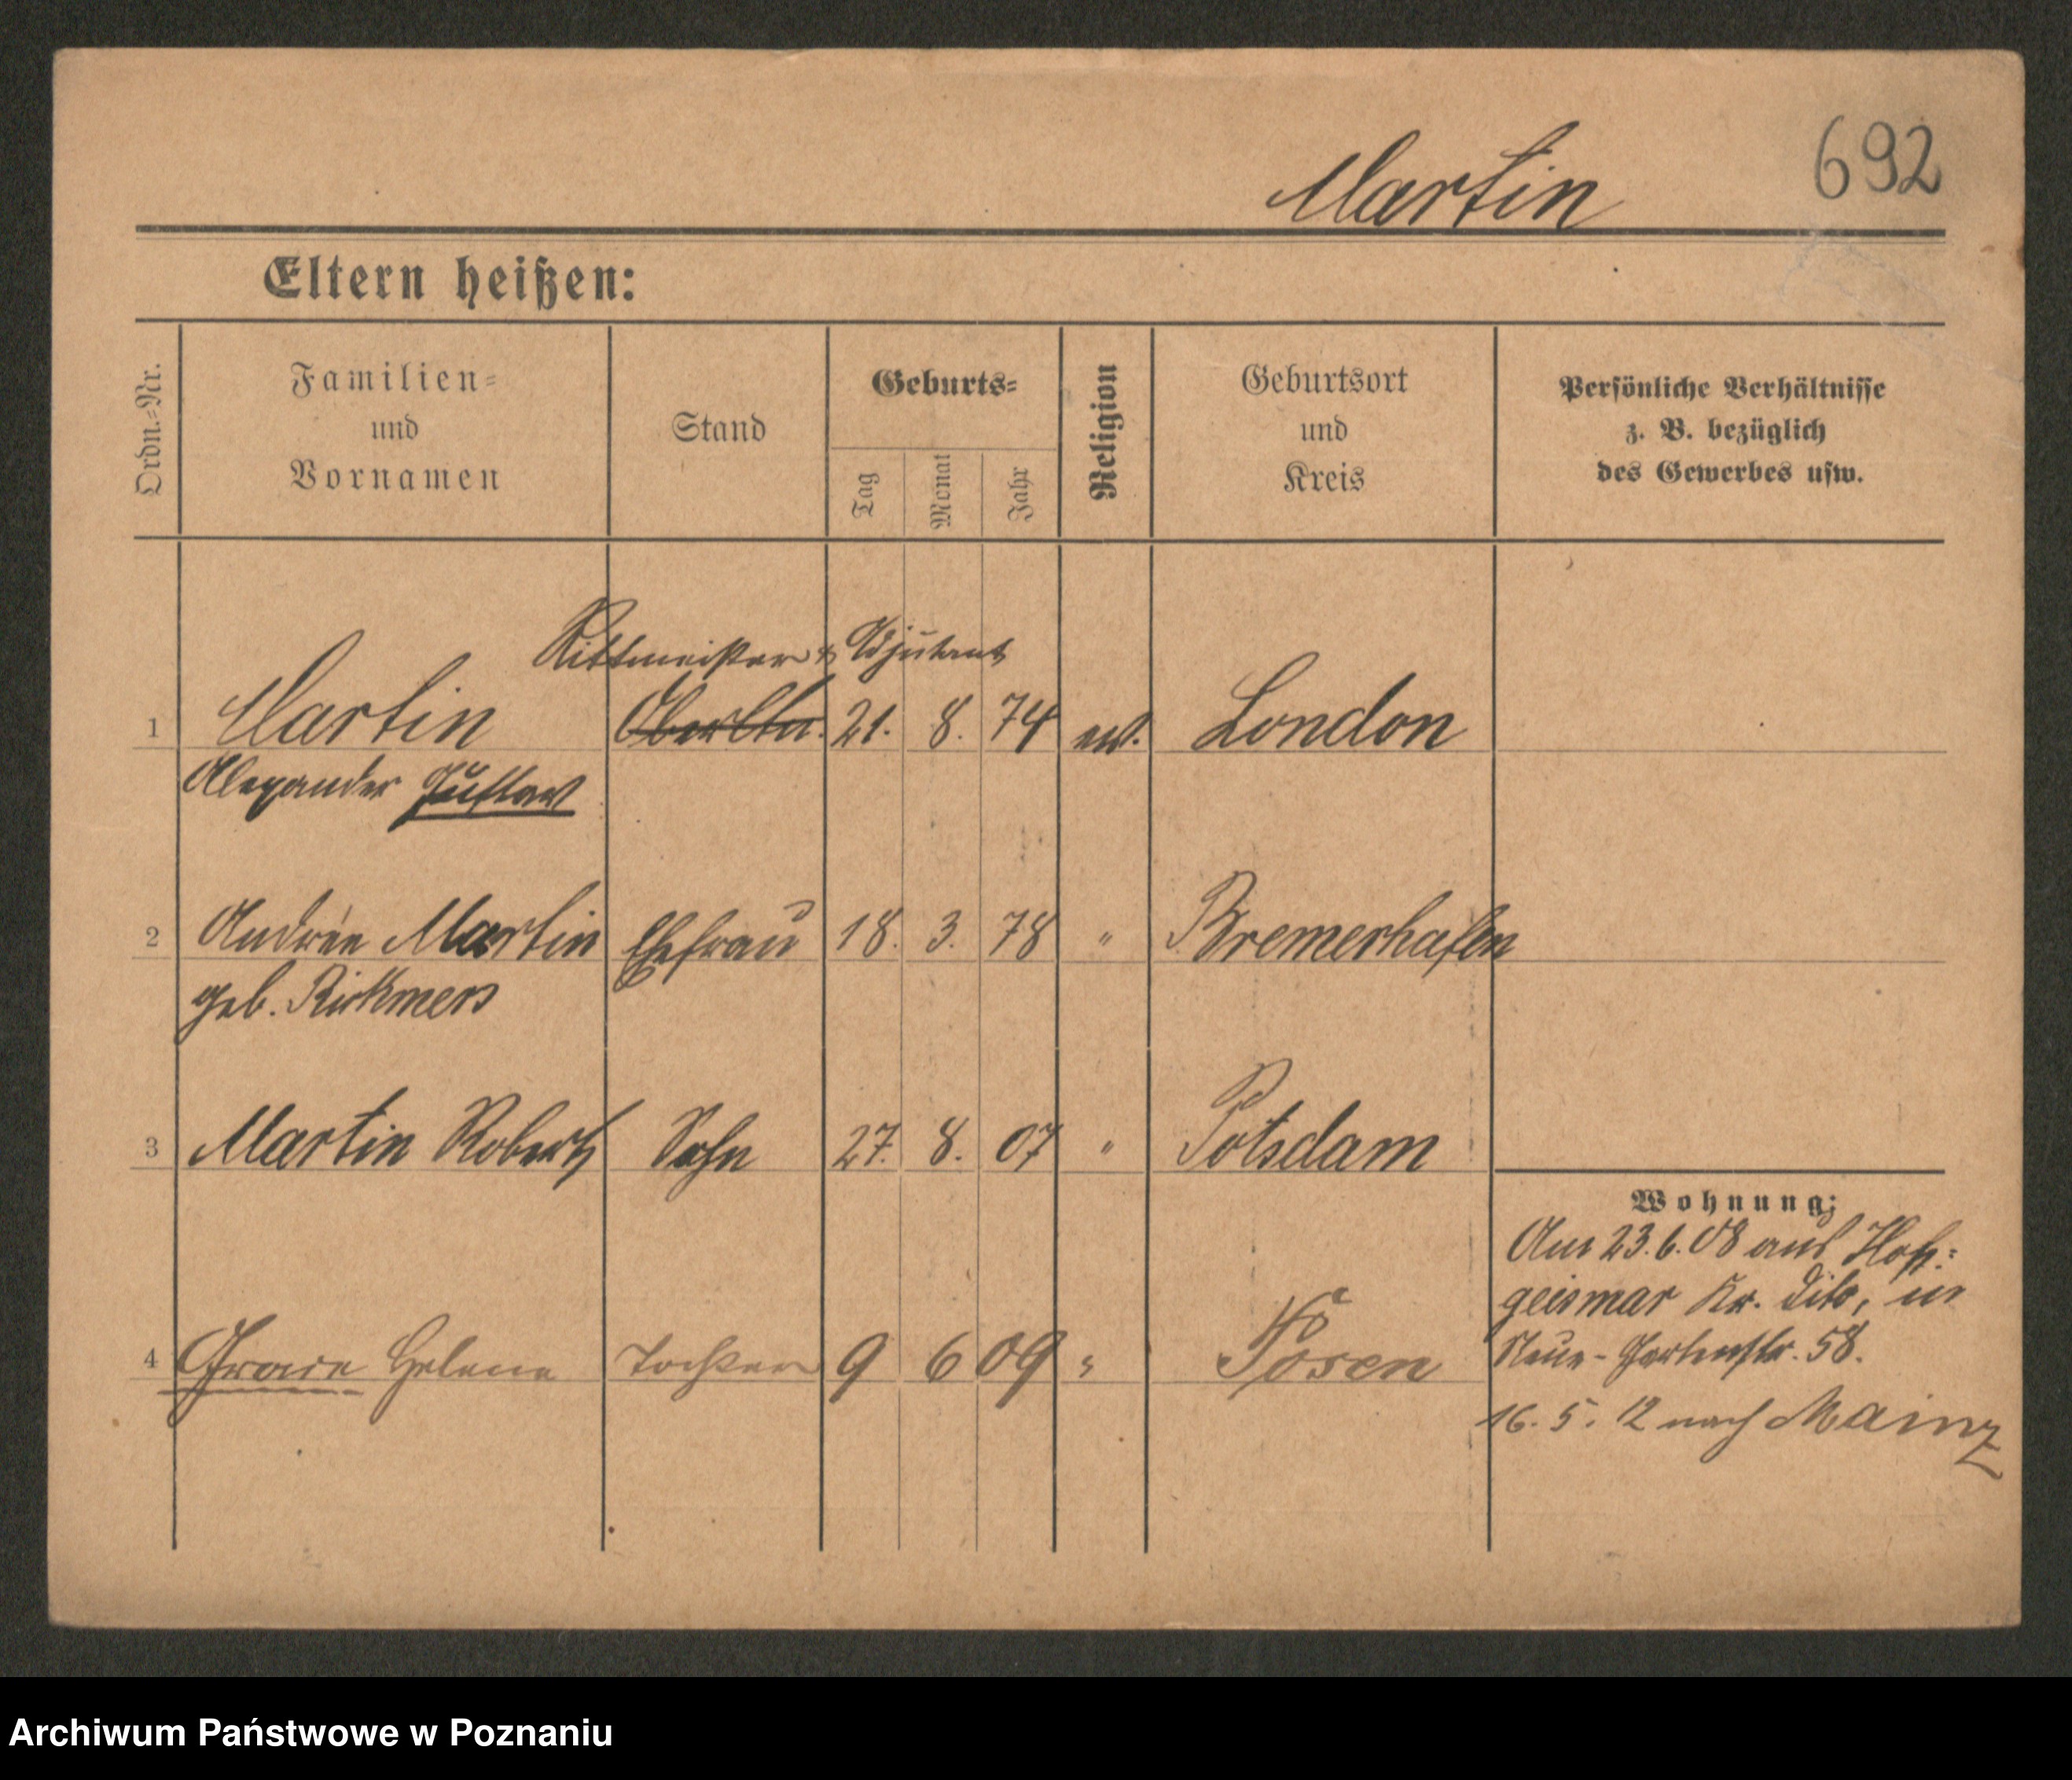 692
Martin
Eltern heißen:
Ordn.=Nr.
Familien=
und
Vornamen
Stand
Geburts=
Tag
Monat
Jahr
Religion
Geburtsort
und
Kreis
Persönliche Verhältnisse
z. B. bezüglich
des Gewerbes usw.
Rittmeister & Adjutant
1 Martin Oberltn. 21. 8. 74 ev. London
Alexander Gustav
2 Andrée Martin Ehefrau 18. 3. 78 " Bremerhafen
geb. Rickmers
3 Martin Robert Sohn 27. 8. 07 " Potsdam
Wohnung:
Am 23.6.08 aus Hof=
geismar Kr. dito, in
Neue-Gartenstr. 58.
4 Helene Tochter 9 6 09 " Posen
16. 5. 12 nach Mainz
Archiwum Państwowe w Poznaniu